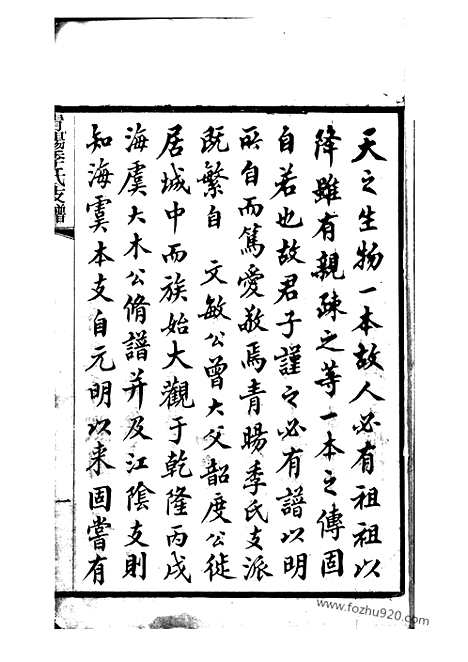 天之生物一本故人必有祖祖以
降雖有親疎之等一本之傳固
自若也故君子謹之必有譜以明
所自而篤愛敬焉青暘季氏支派
既繁自 文敏公曾大父韶度公徙
居城中而族始大觀于乾隆丙戌
海虞大木公脩譜并及江陰支則
知海虞本支自元明以来固嘗有
青暘季氏支譜
www.fozhu920.com